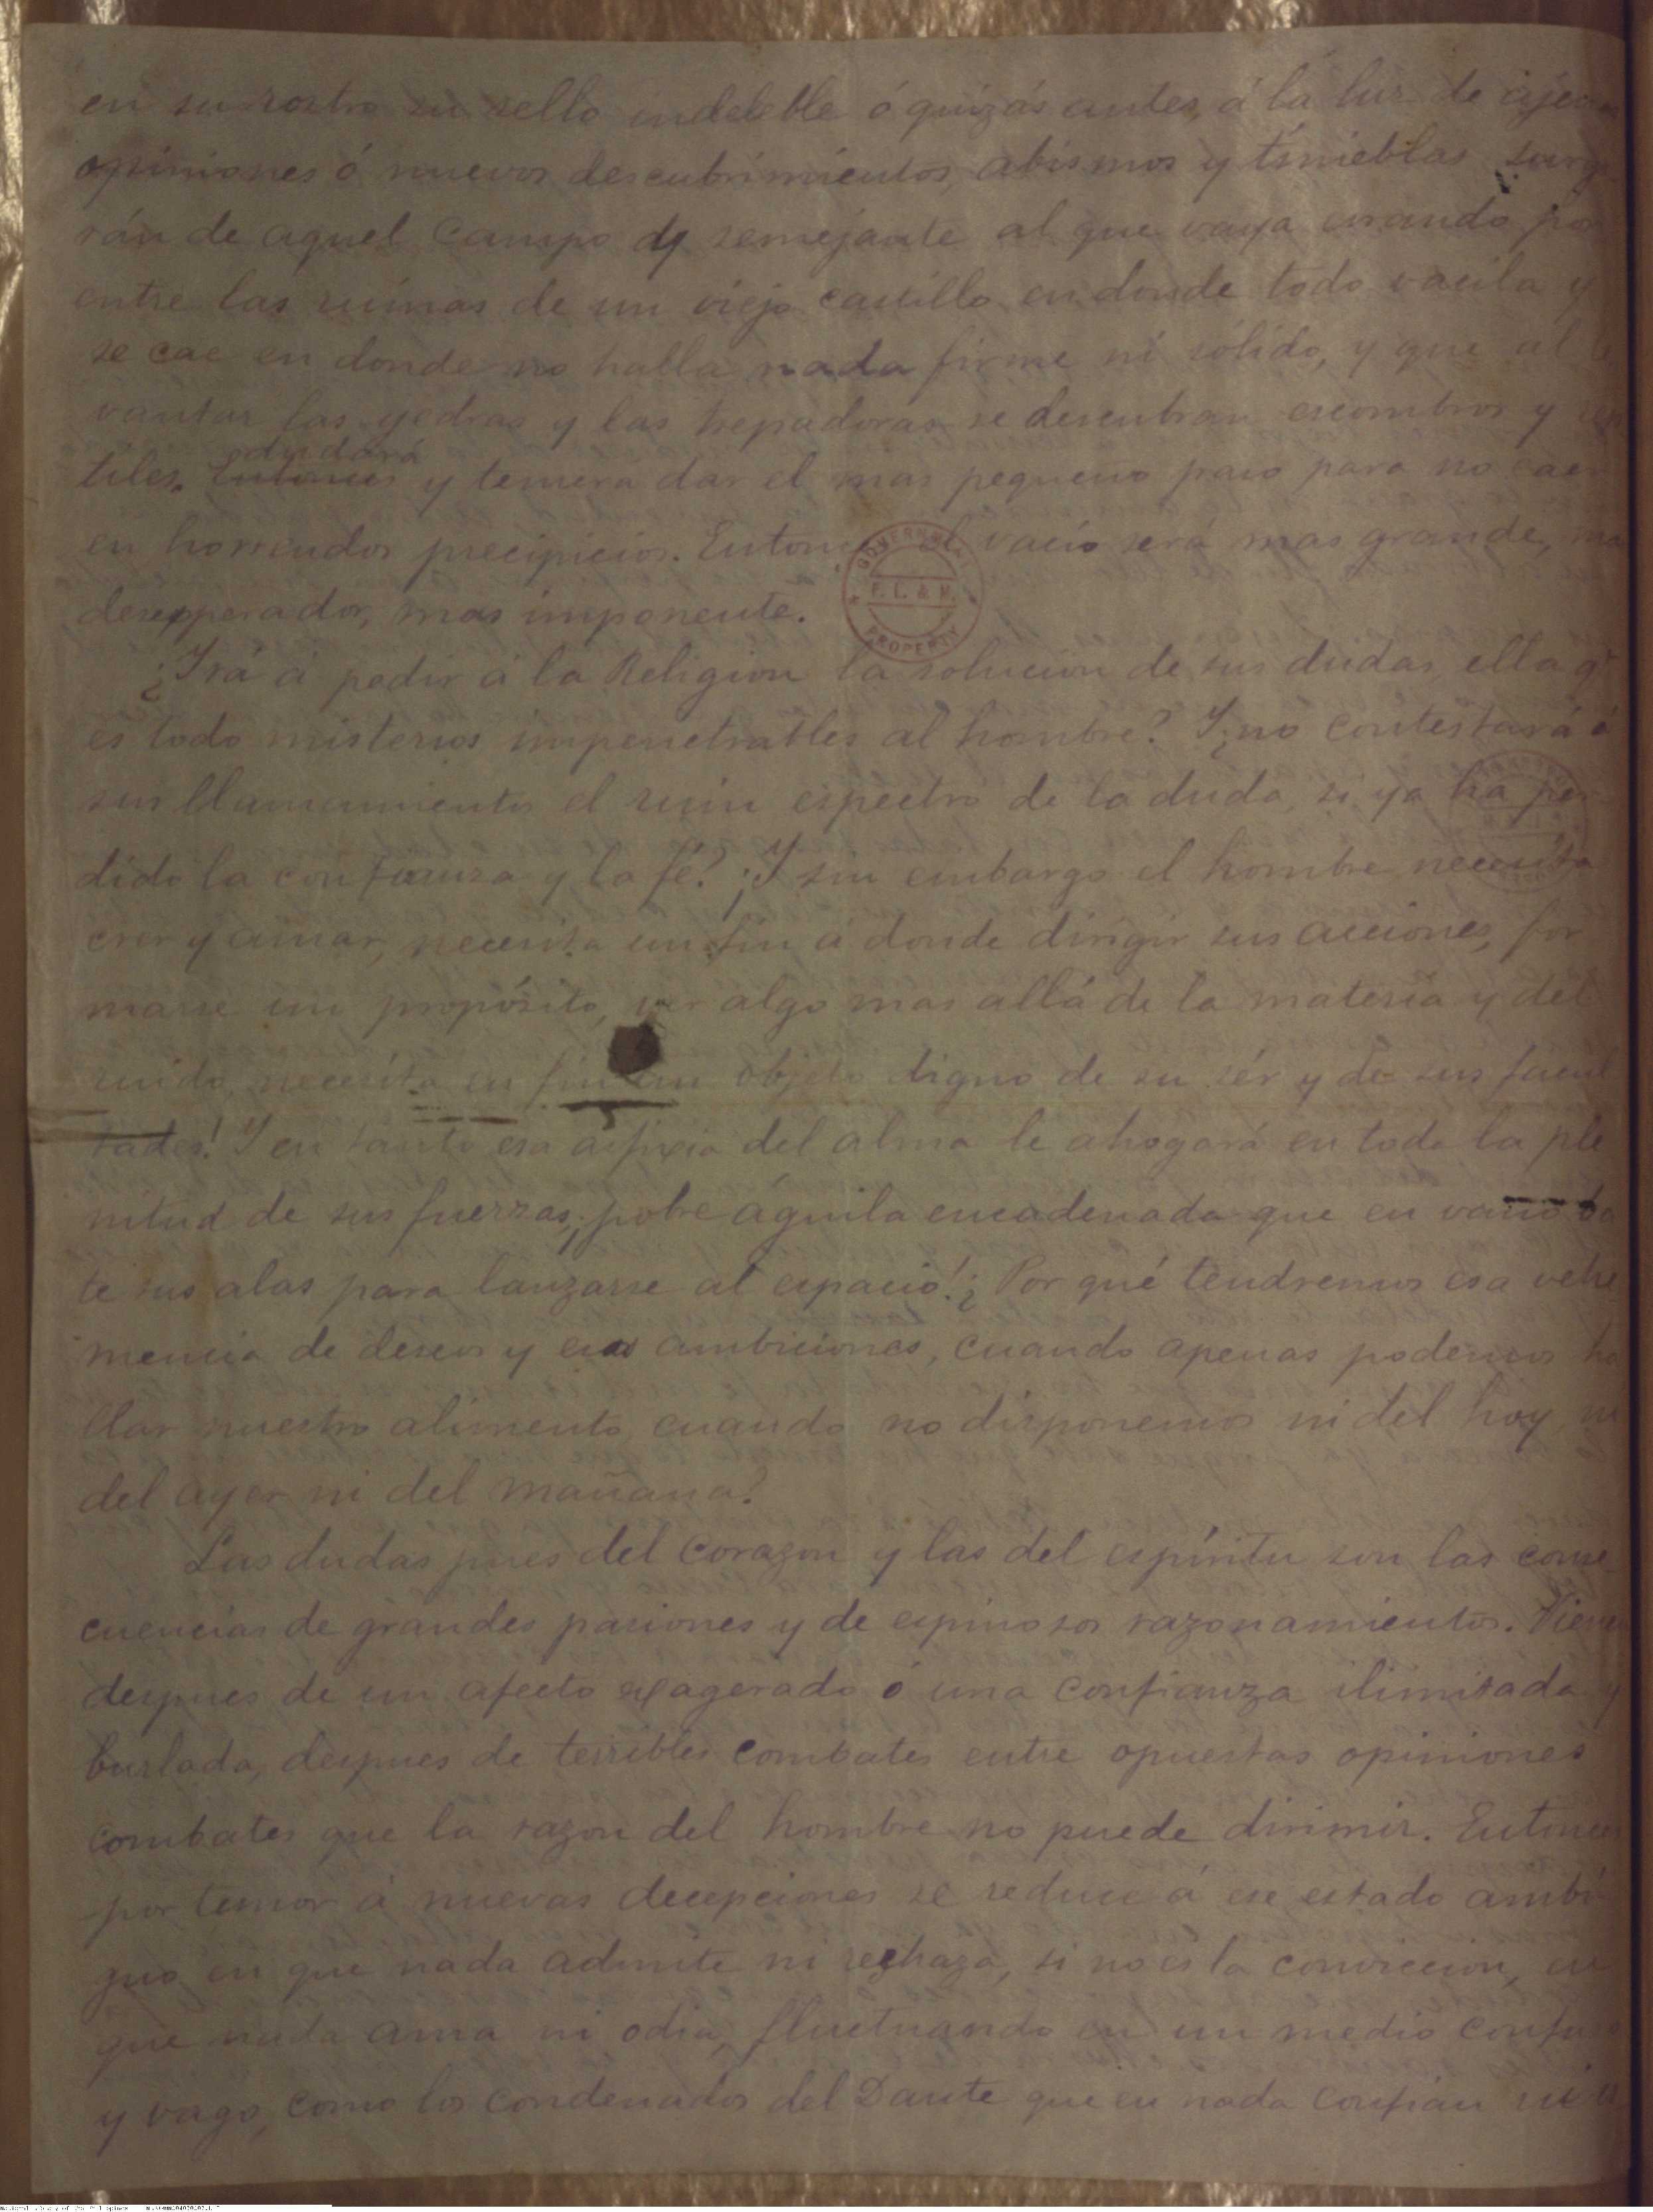 en su rostro su sello indeleble ó quizás antes, á la luz de ajenas
opiniones ó nuevos descubrimientos, abismos y tinieblas surgi
rán de aquel campo dy semejante al que vaya errando por
entre las ruinas de un viejo castillo en donde todo vacila y
se cae en donde no halla nada firme ni sólido, y que al le
vantar las yedras y las trepadoras se descubran escombros y rep
dudará
tiles. Entonces y temera dar el mas pequeño paso para no caer
en horrendos precipicios. Entonces el vacio será mas grande, mas
desesperador, mas imponente.
GOVERNMENT P. L. & M. PROPERTY
¿Irá á pedir á la Religion la solucion de sus dudas, ella q᷎
es todo misterios impenetrables al hombre? I ¿no contestará á
sus llamamientos el ruin espectro de la duda, si ya ha per
dido la confianza y la fé? ¡I sin embargo el hombre necesita
creer y amar, necesita un fin á donde dirigir sus acciones, for
marse un propósito, ver algo mas allá de la materia y del
ruido, necesita en fin un objeto digno de su sér y de sus facul
tades! I en tanto esa asfixia del alma le ahogará en toda la ple
nitud de sus fuerzas, ¡pobre águila encadenada que en vano ba
te sus alas para lanzarse al espacio! ¿Por qué tendremos esa vehe
mencia de deseos y esas ambiciones, cuando apenas podemos ha
llar nuestro alimento, cuando no disponemos ni del hoy, ni
del ayer ni del mañana?
Las dudas pues del corazon y las del espíritu son las conse
cuencias de grandes pasiones y de espinosos razonamientos. Vienen
despues de un afecto exagerado ó una confianza ilimitada y
burlada, despues de terribles combates entre opuestas opiniones
combates que la razon del hombre no puede dirimir. Entonces
por temor á nuevas decepciones se reduce á ese estado ambi
guo en que nada admite ni rechaza, si no es la conviccion, en
que nada ama ni odia, fluctuando en un medio confuso
y vago, como los condenados del Dante que en nada confian ni